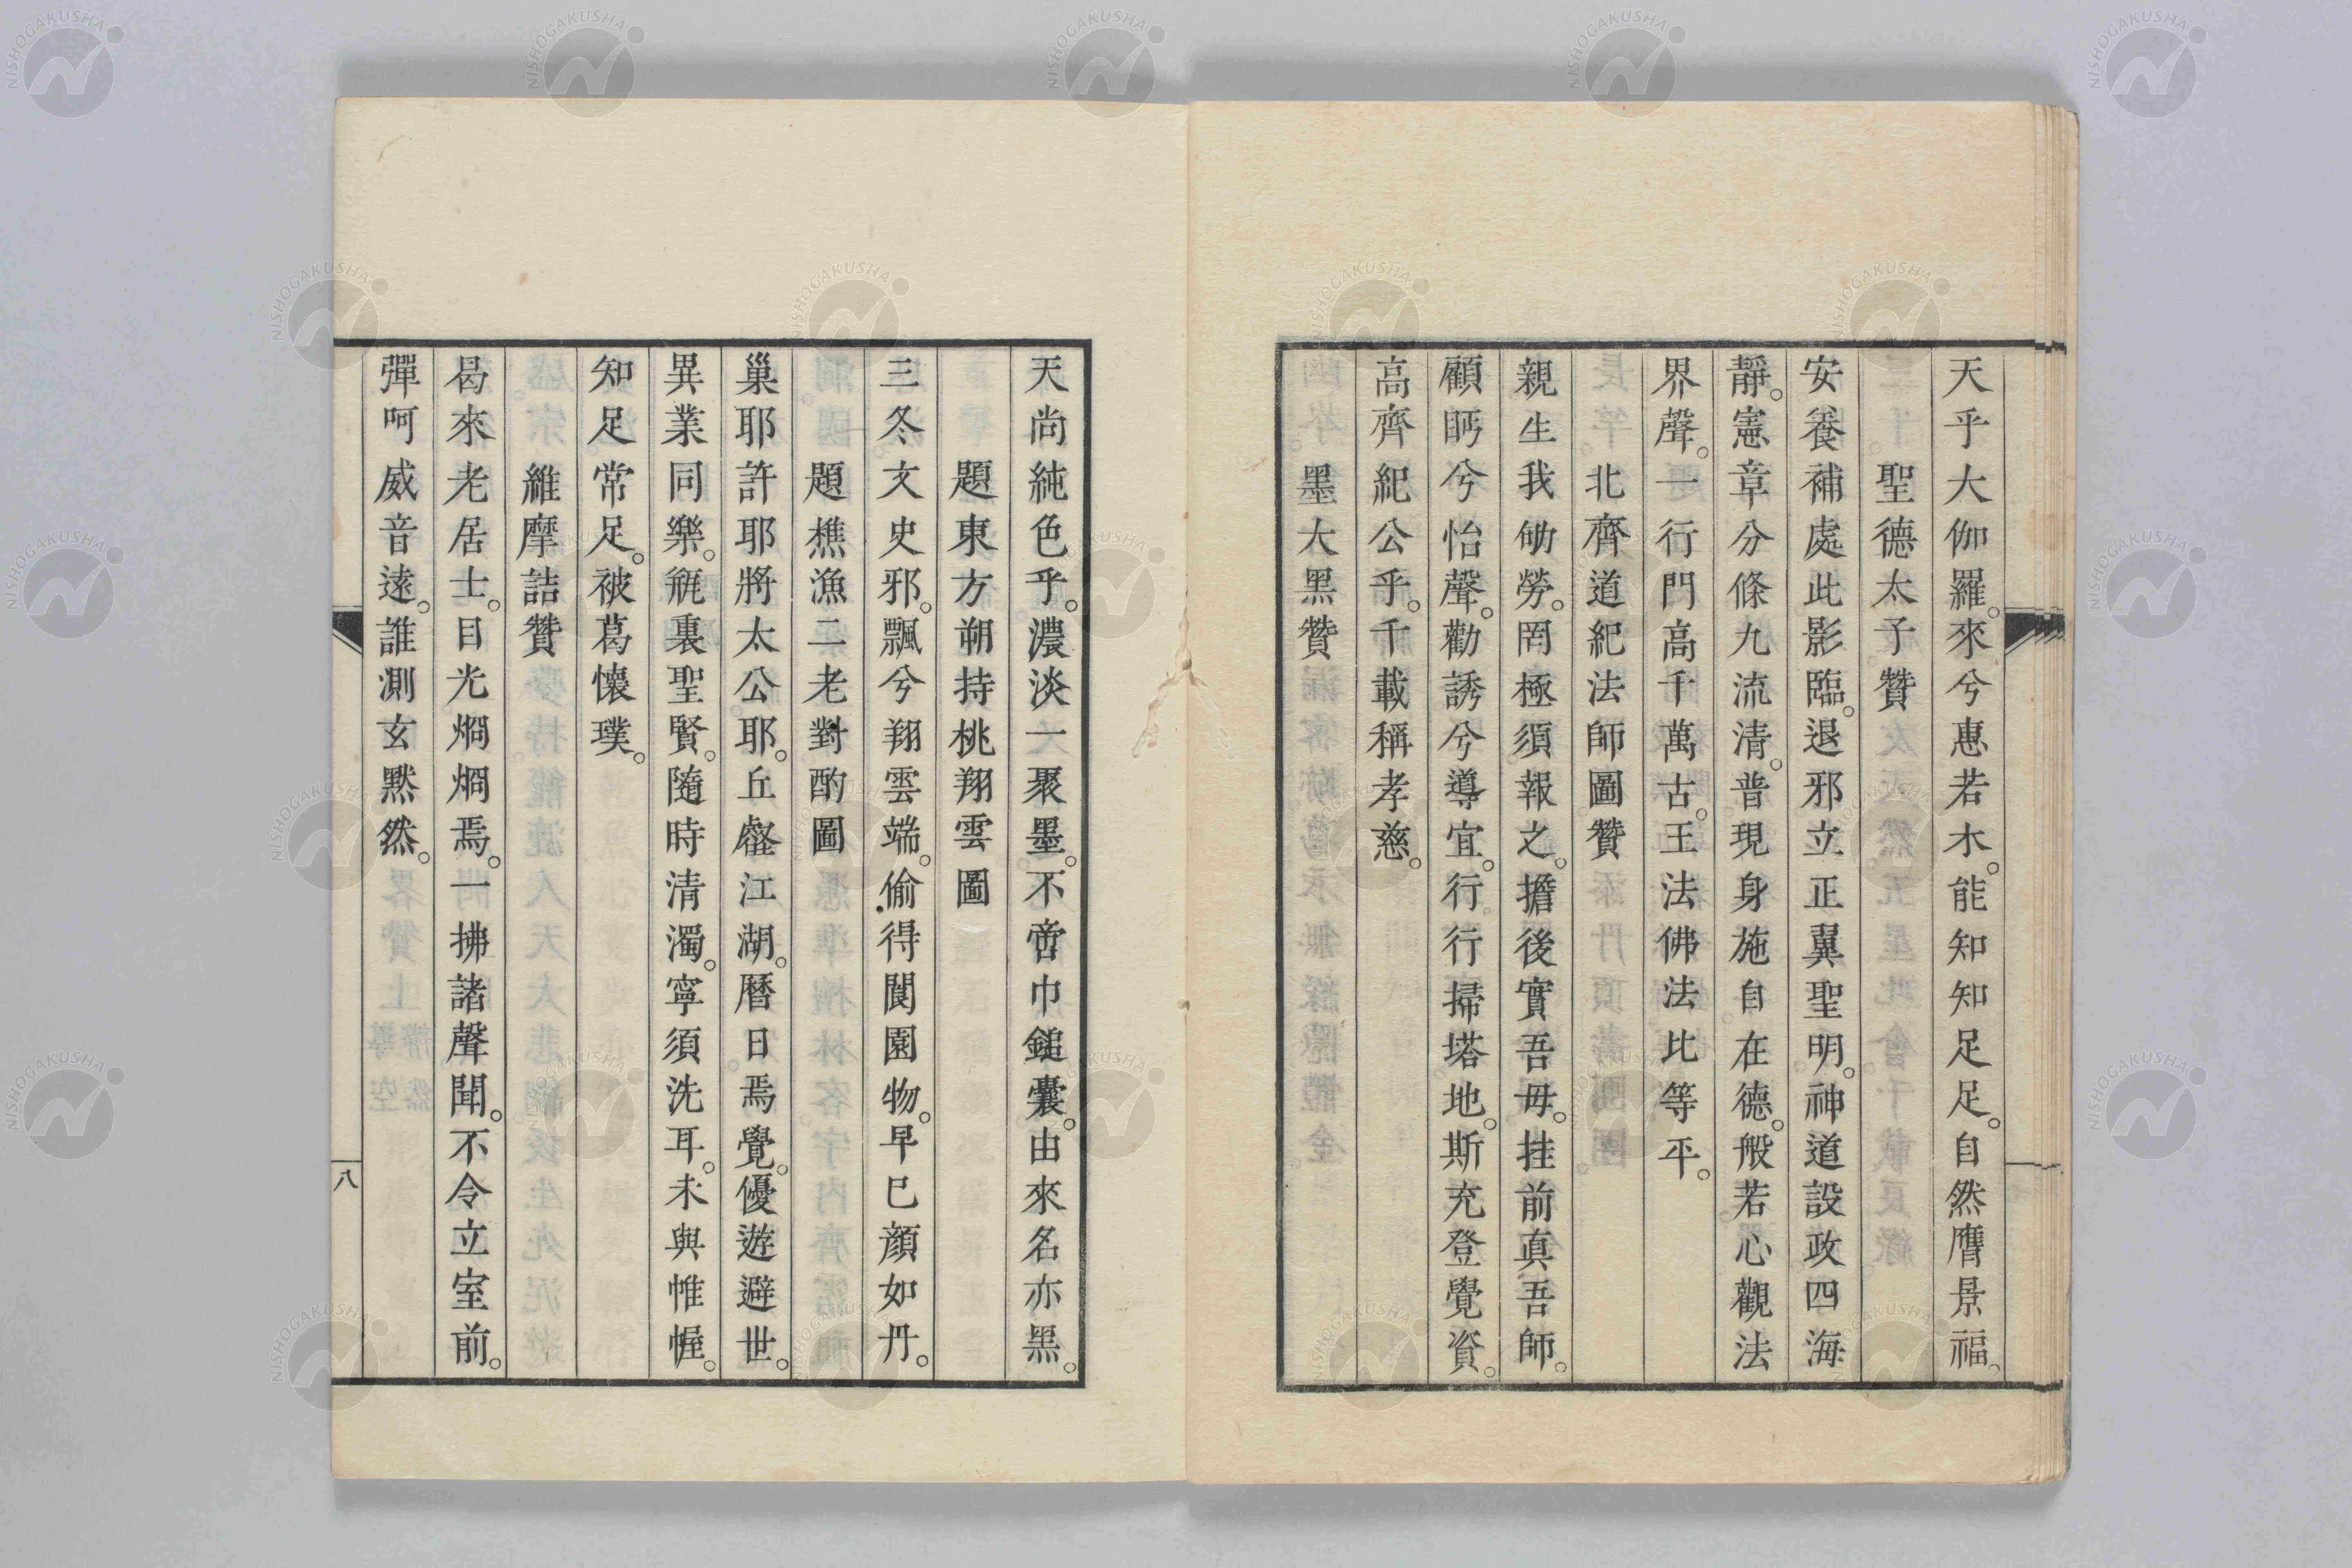 天乎大伽羅。來兮惠若木。能知知足足。自然膺景福。
聖德太子贊
安養補處此影臨。退邪立正翼聖明。神道設政四海
靜。憲章分條九流清。普現身施自在德。般若心觀法
界聲。一行門高千萬古。王法佛法比等平。
北齊道紀法師圖贊
親生我劬勞。罔極須報之。擔後實吾毋。挂前真吾師。
顧眄兮怡聲。勸誘兮導宜。行行掃塔地。斯充登覺資。
高齊紀公乎。千載稱孝慈。
墨大黑贊
天尚純色乎。濃淡一聚墨。不啻巾鎚囊。由來名亦黑。
題東方朔持桃翔雲圖
三冬文史邪。飄兮翔雲端。偷得閬園物。早已顔如丹。
題樵漁二老對酌圖
巢耶許耶將太公耶。丘壑江湖。曆日焉覺。優遊避世。
異業同樂。瓶裏聖賢。隨時清濁。寧須洗耳。未與帷幄。
知足常足。被葛懷璞。
維摩詰贊
曷來老居士。目光烱烱焉。一拂諸聲聞。不令立室前。
彈呵威音遠。誰測玄默然。
八
NISHOGAKUSHA